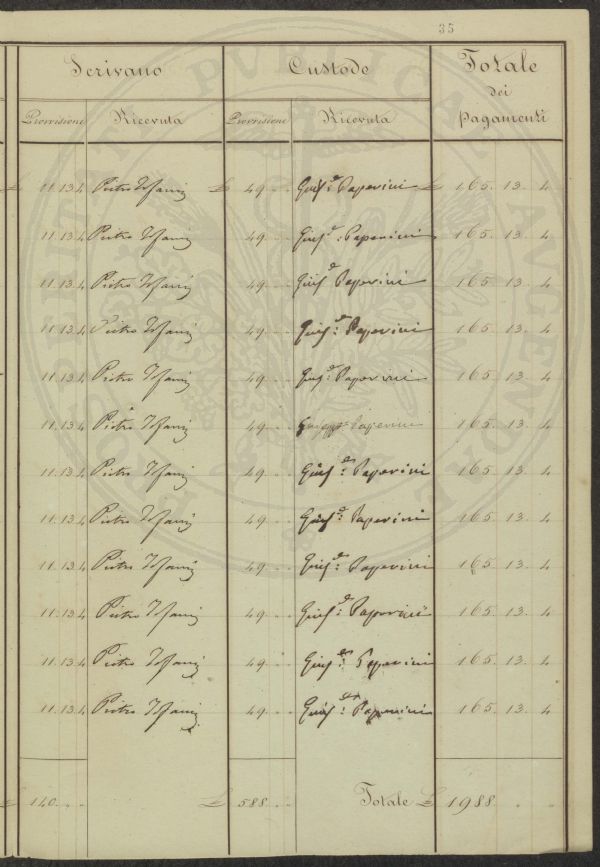 35
Scrivano Custode Totale
dei
Provvisione Ricevuta Provvisione Ricevuta pagamenti
£ 11.13.4 Pietro Tofani £ 49 .. .. Giusᵉ Paperini £ 165. 13. 4
11.13.4 Pietro Tofani 49 .. .. Giusᵉ: Paperini 165. 13. 4
11.13.4 Pietro Tofani 49 .. .. Giusᵉ Paperini 165. 13. 4
11.13.4 Pietro Tofani 49 .. .. Giusᵉ: Paperini 165. 13. 4
11.13.4 Pietro Tofani 49 .. .. Giusᵉ: Paperini 165. 13. 4
11.13.4 Pietro Tofani 49 .. .. Giuseppe Paperini 165. 13. 4
11.13.4 Pietro Tofani 49 .. .. Giusᵉ: Paperini 165. 13. 4
11.13.4 Pietro Tofani 49 .. .. Giusᵉ: Paperini 165. 13. 4
11.13.4 Pietro Tofani 49 .. .. Giusᵉ: Paperini 165. 13. 4
11.13.4 Pietro Tofani 49 .. .. Giusᵉ: Paperini 165. 13. 4
11.13.4 Pietro Tofani 49 .. .. Giusᵉ: Paperini 165. 13. 4
11.13.4 Pietro Tofani 49 .. .. Giusᵉ: Paperini 165. 13. 4
£ 140 .. .. £ 588 .. .. Totale £ 1988 .. ..